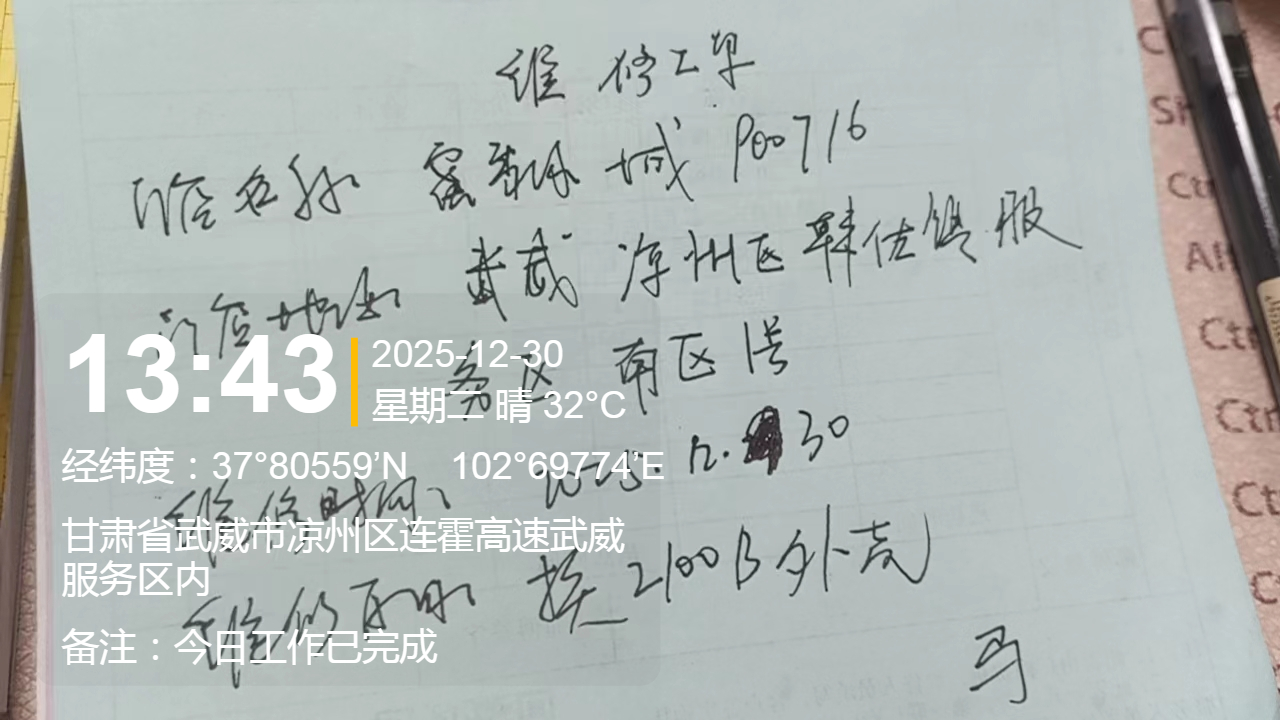 维修工单
门店名称 城 P00716
门店地址 武威 凉州区 服
务区 南区1号
维修时间: 2025.12.30
维修 换2100B外壳
马
13:43
2025-12-30
星期二 晴 32°C
经纬度：37°80559’N 102°69774’E
甘肃省武威市凉州区连霍高速武威
服务区内
备注：今日工作已完成
Ctrl
Alt
Ctrl